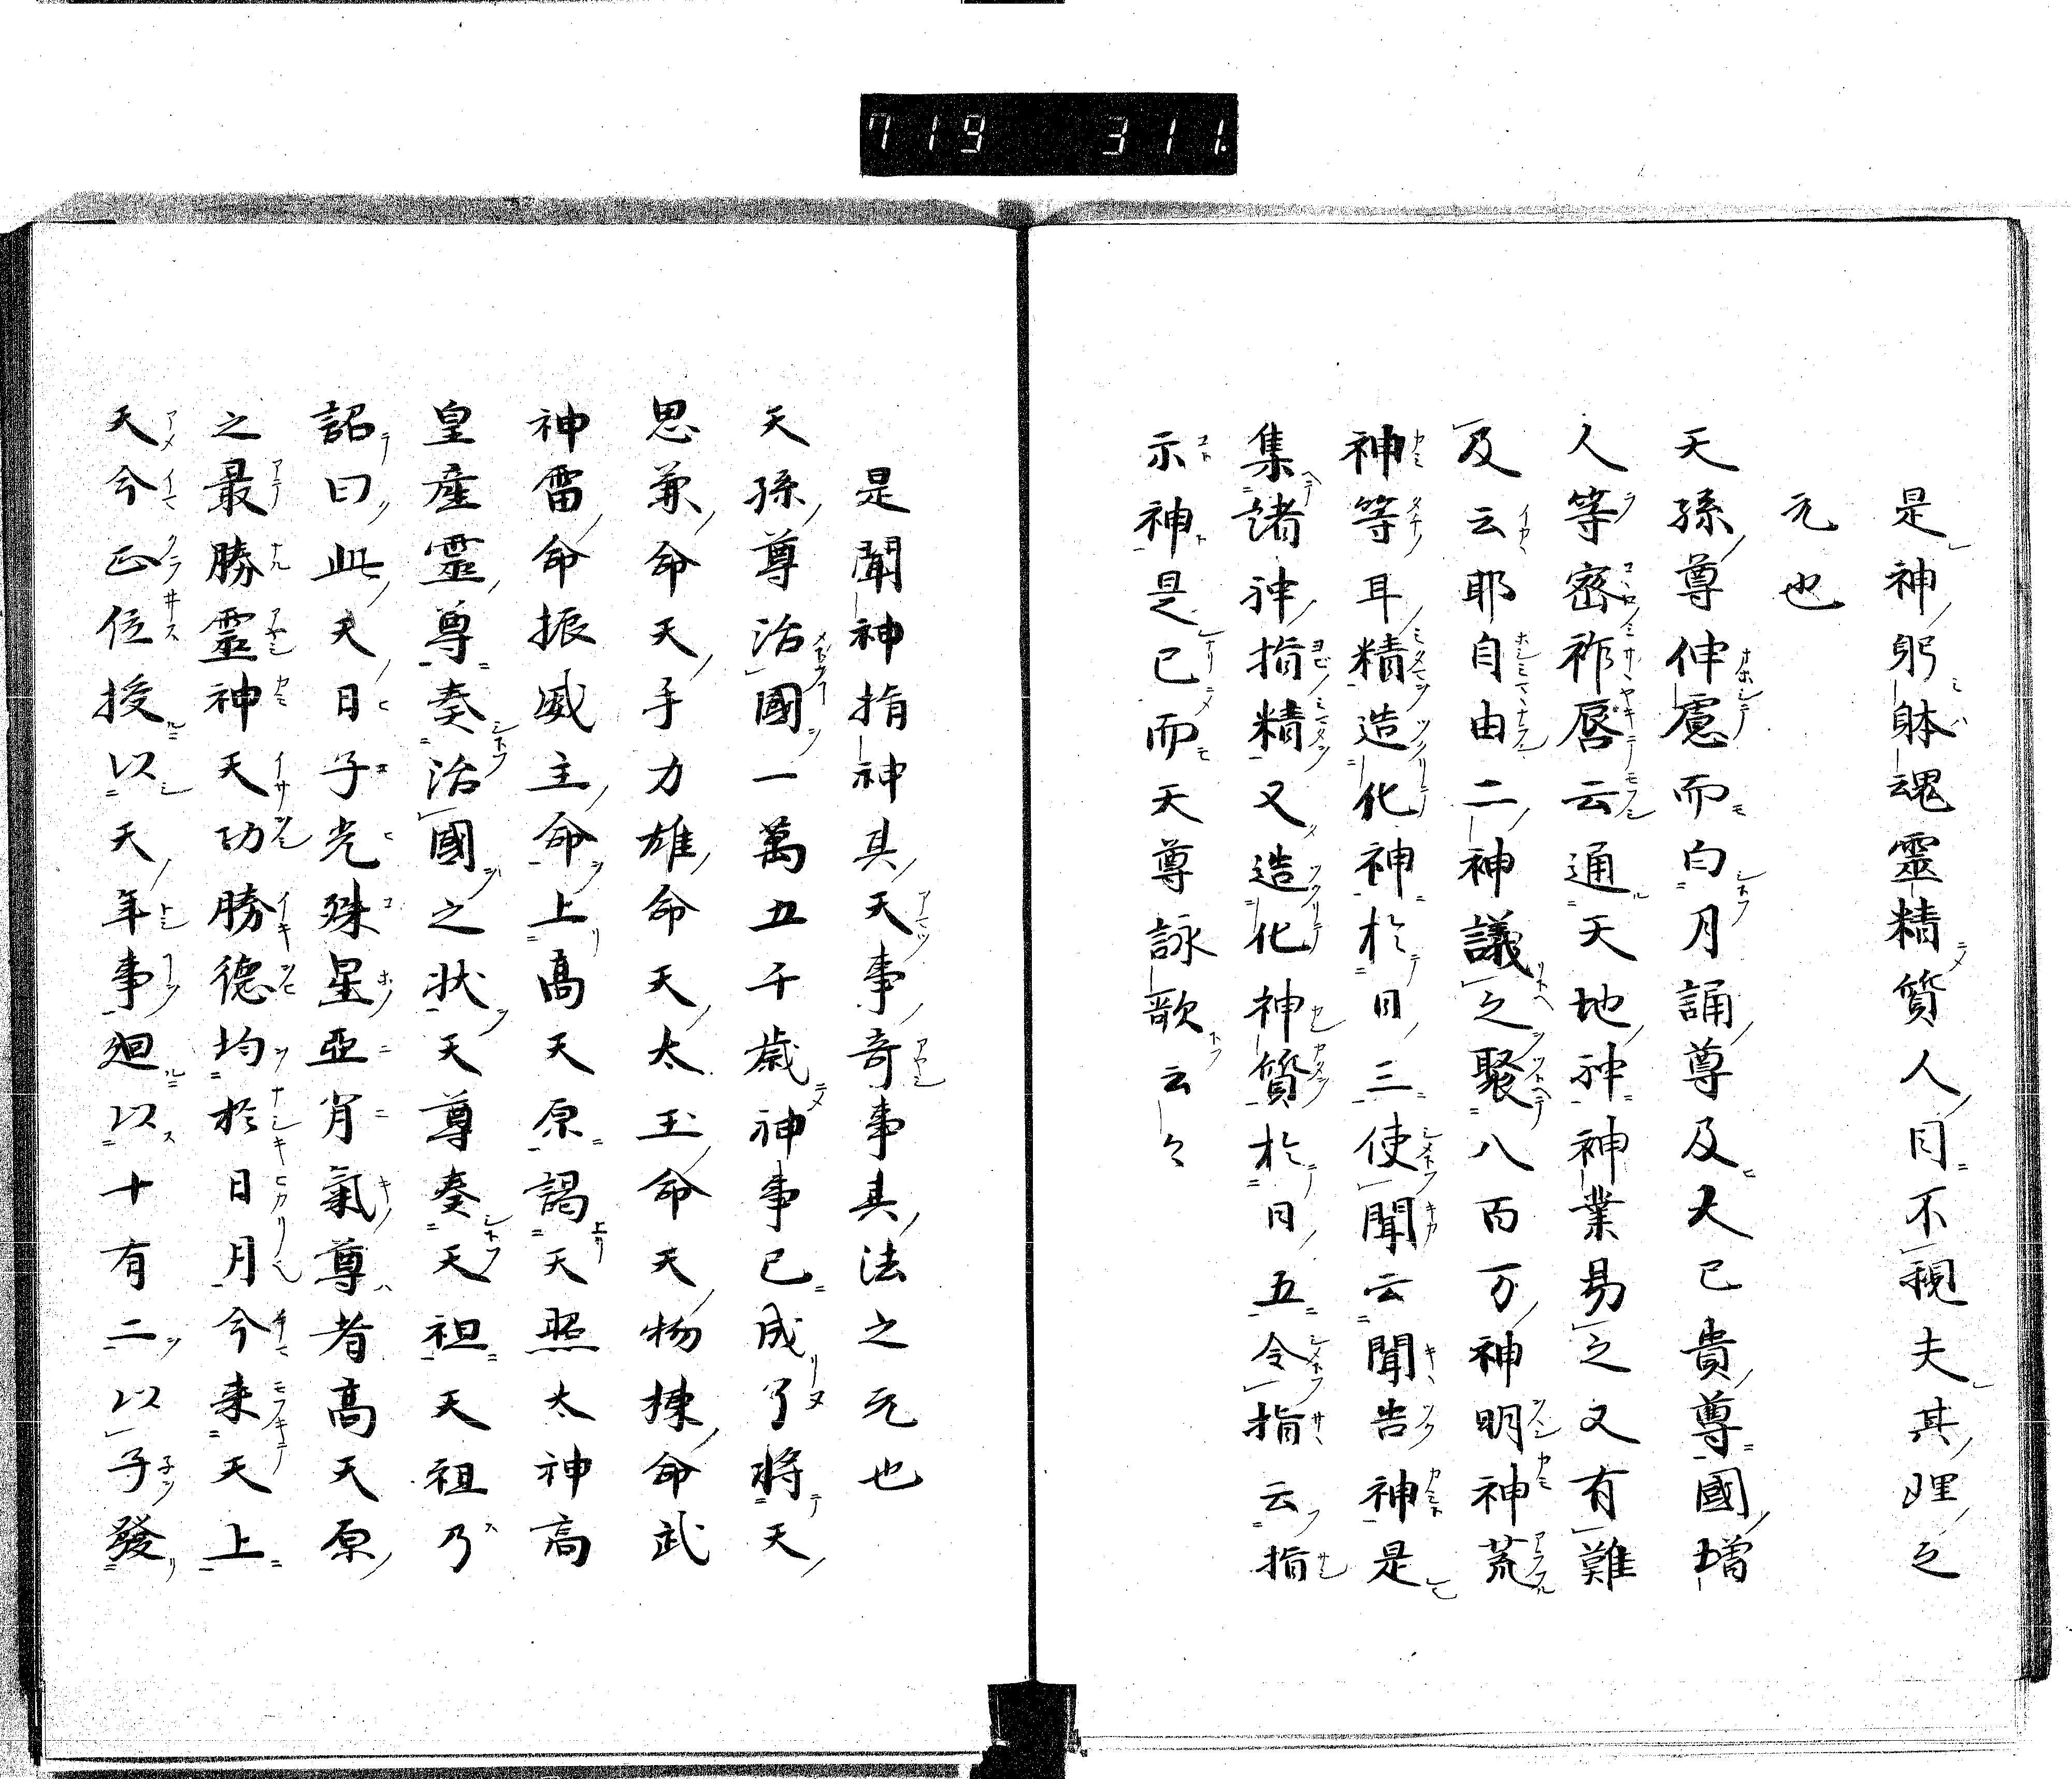 719 311.
是神躬躰魂靈精質人目不視夫其理之
元也
天孫尊伸慮而白月誦尊及大已貴尊國增
人等密祚唇云通天地神神業易之又有難
及云耶自由二神議之聚八百万神明神荒
神等耳精造化神於目三使聞云聞告神是
集諸神指精又造化神質於日五令指云指
示神是已而天尊詠歌云々
是聞神指神其天事奇事其法之元也
天孫尊治國一萬五千歲神事已成了將天
思兼命天手力雄命天太玉命天物揀命武
神雷命振威主命上高天原謁天照太神高
皇產靈尊奏治國之狀天尊奏天祖天祖乃
詔曰此天日子光殊星亞肖氣尊者高天原
之最勝靈神天功勝德均於日月今来天上
天今正位授以天年事廻以十有二以子發